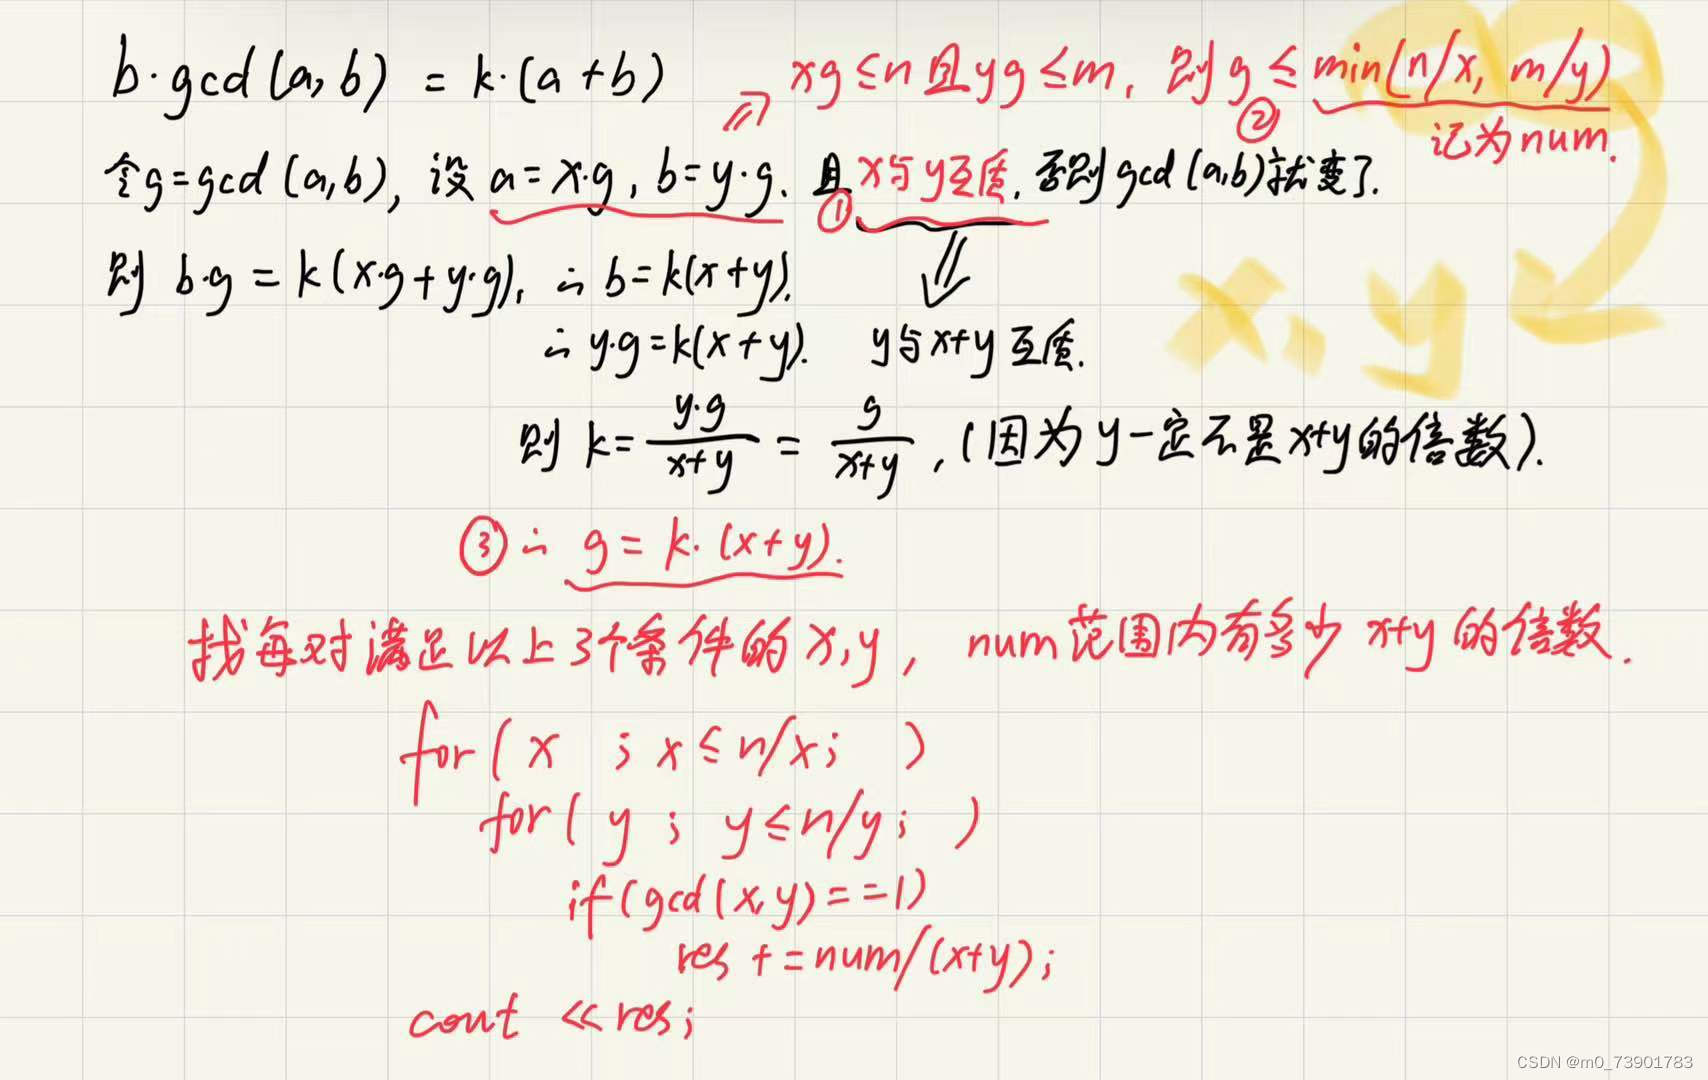 b·gcd(a,b) = k·(a+b)
xg≤n且yg≤m, 则g≤min(n/x, m/y)
② 记为num.
令g=gcd(a,b), 设a=x·g, b=y·g. 且x与y互质, 否则gcd(a,b)就变了.
①
则 b·g = k(x·g+y·g), ∴ b=k(x+y).
x, y
∴ y·g=k(x+y). y与x+y互质.
则 k= y·g/x+y = g/x+y, (因为y一定不是x+y的倍数).
③ ∴ g = k·(x+y).
找每对满足以上3个条件的x,y, num范围内有多少x+y的倍数.
for( x ; x≤n/x; )
for( y ; y≤n/y; )
if(gcd(x,y)==1)
res += num/(x+y);
cout <<res;
CSDN @m0_73901783